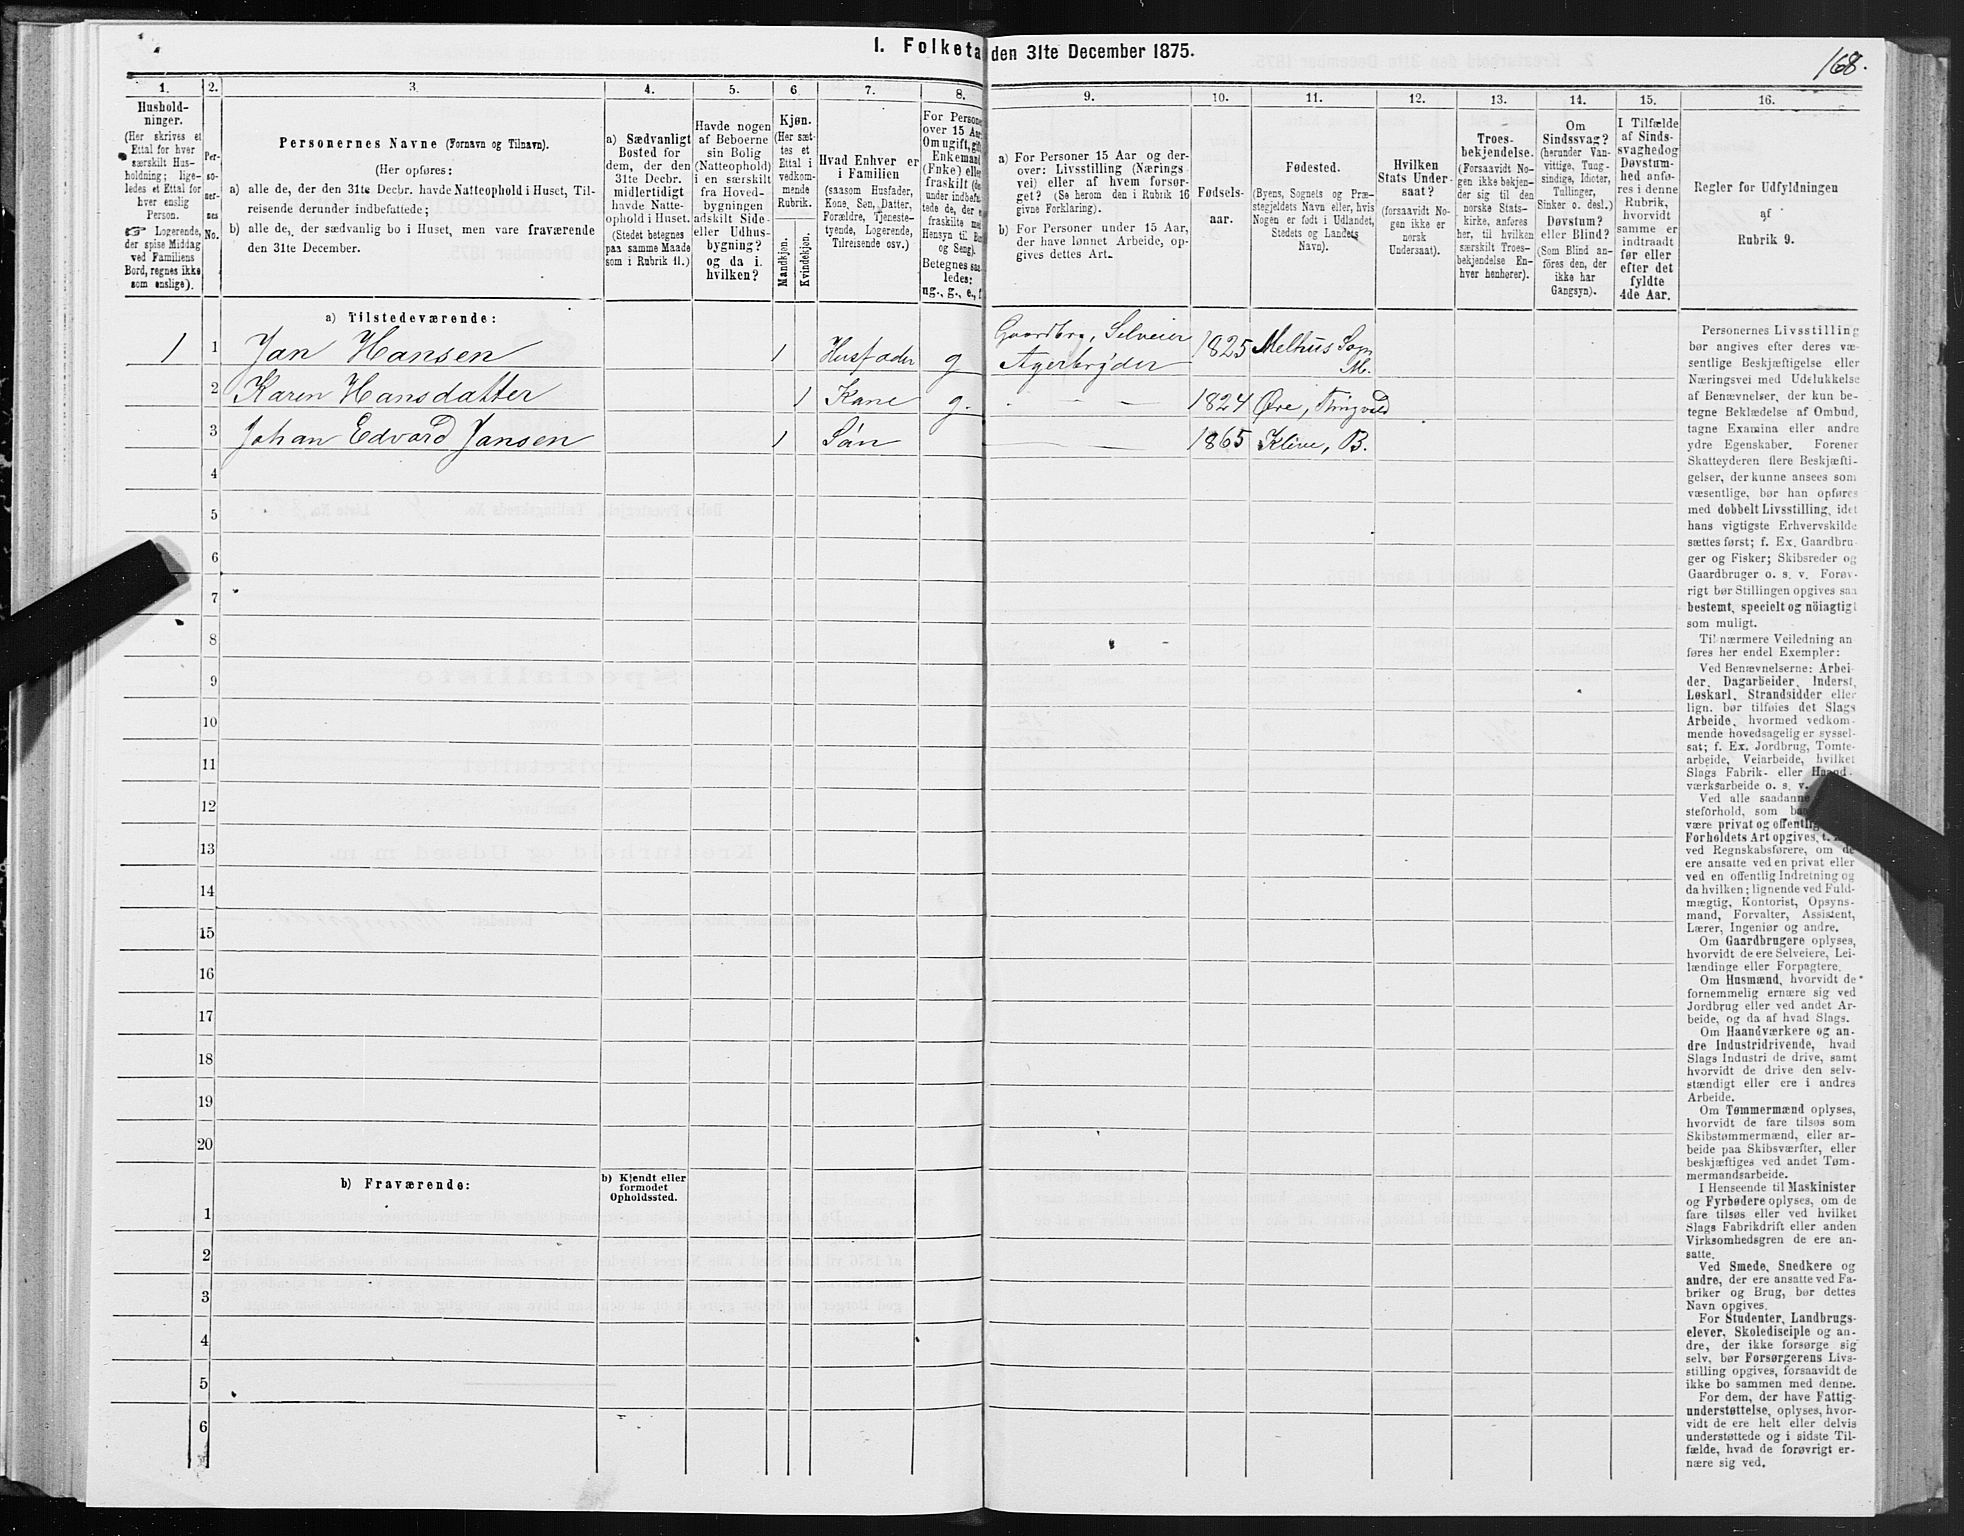 168.
I. Folketa
den 31te December 1875.
1.
Hushold-
ninger.
(Her skrives et
Ettal for hver
særskilt Hus-
holdning; lige-
ledes et Ettal for
hver enslig
Person.
☞ Logerende,
der spise Middag
ved Familiens
Bord, regnes ikke
som enslige).
2.
Per-
so-
ner-
nes
No.
3.
Personernes Navne (Fornavn og Tilnavn).
(Her opføres:
a) alle de, der den 31te Decbr. havde Natteophold i Huset, Til-
reisende derunder indbefattede;
b) alle de, der sædvanlig bo i Huset, men vare fraværende
den 31te December.
4.
a) Sædvanligt
Bosted for
dem, der den
31te Decbr.
midlertidigt
havde Natte-
ophold i Huset.
(Stedet betegnes
paa samme Maade
som i Rubrik 11.)
5.
Havde nogen
af Beboerne
sin Bolig
(Natteophold)
i en særskilt
fra Hoved-
bygningen
adskilt Side-
eller Udhus-
bygning?
og da i
hvilken?
6.
Kjøn.
(Her sæt-
tes et
Ettal i
vedkom-
mende
Rubrik.
Mandkjøn.
Kvindekjøn.
7.
Hvad Enhver er
i Familien
(saasom Husfader,
Kone, Søn, Datter,
Forældre, Tjeneste-
tyende, Logerende,
Tilreisende osv.)
8.
For Persone
over 15 Aa
Om ugift, gif
Enkemand
(Enke) elle
fraskilt (de
under indbefat
tede de, der e
fraskilte med
Hensyn til Bo
og Seng).
Betegnes saa
ledes:
ug., g., e., f
9.
a) For Personer 15 Aar og der-
over: Livsstilling (Nærings-
vei) eller af hvem forsør-
get? (Se herom den i Rubrik 16
givne Forklaring).
b) For Personer under 15 Aar,
der have lønnet Arbeide, op-
gives dettes Art.
10.
Fødsels-
aar.
11.
Fødested.
(Byens, Sognets og Præ-
stegjeldets Navn eller, hvis
Nogen er født i Udlandet,
Stedets og Landets
Navn).
12.
Hvilken
Stats Under-
saat?
(forsaavidt No-
gen ikke er
norsk
Undersaat).
13.
Troes-
bekjendelse.
(Forsaavidt No-
gen ikke bekjen-
der sig til den
norske Stats-
kirke, anføres
her, til hvilken
særskilt Troes-
bekjendelse En-
hver henhører).
14.
Om
Sindssvag?
(herunder Van-
vittige, Tung-
sindige, Idioter,
Tullinger,
Sinker o. desl.)
Døvstum?
eller Blind?
(Som Blind an-
føres den, der
ikke har
Gangsyn).
15.
I Tilfælde
af Sinds-
svaghed og
Døvstum-
hed anfø-
res i denne
Rubrik,
hvorvidt
samme er
indtraadt
før eller
efter det
fyldte
4de Aar.
16.
Regler for Udfyldningen
af
Rubrik 9.
a) Tilstedeværende:
1 1 Jan Hansen 1 Husfader g Gaardbrg, Selveier 1825 Melhus Sogn
Agerbryder M.
2 Karen Hansdatter 1 Kone g. - - - 1824 Øre, Thingvold
3 Johan Edvard Jansen 1 Søn 1865 Klive, B.
4
5
6
7
8
9
10
11
12
13
14
15
16
17
18
19
20
b) Fraværende:
b) Kjendt eller
formodet
Opholdssted.
1
2
3
4
5
6
Personernes Livsstilling
bør angives efter deres væ-
sentlige Beskjæftigelse eller
Næringsvei med Udelukkelse
af Benævnelser, der kun be-
tegne Beklædelse af Ombud,
tagne Examina eller andre
ydre Egenskaber. Forener
Skatteyderen flere Beskjæfti-
gelser, der kunne ansees som
væsentlige, bør han opføres
med dobbelt Livsstilling, idet
hans vigtigste Erhvervskilde
sættes først; f. Ex. Gaardbru-
ger og Fisker; Skibsreder og
Gaardbruger o. s. v. Forøv-
rigt bør Stillingen opgives saa
bestemt, specielt og nöiagtigt
som muligt.
Til nærmere Veiledning an
føres her endel Exempler:
Ved Benævnelserne: Arbei-
der, Dagarbeider, Inderst,
Løskarl, Strandsidder eller
lign. bør tilføies det Slags
Arbeide, hvormed vedkom-
mende hovedsagelig er syssel-
sat; f. Ex. Jordbrug, Tomte-
arbeide, Veiarbeide, hvilket
Slags Fabrik- eller Haand-
værksarbeide o. s. v.
Ved alle saadanne
steforhold, som
være privat og offentlig
Forholdets Art opgives, t.
ved Regnskabsførere, om de
ere ansatte ved en privat eller
ved en offentlig Indretning og
da hvilken; lignende ved Fuld-
mægtig, Kontorist, Opsyns-
mand, Forvalter, Assistent,
Lærer, Ingeniør og andre.
Om Gaardbrugere oplyses,
hvorvidt de ere Selveiere, Lei-
lændinge eller Forpagtere.
Om Husmænd, hvorvidt de
fornemmelig ernære sig ved
Jordbrug eller ved andet Ar-
beide, og da af hvad Slags.
Om Haandværkere og an-
dre Industridrivende, hvad
Slags Industri de drive, samt
hvorvidt de drive den selv-
stændigt eller ere i andres
Arbeide.
Om Tømmermænd oplyses,
hvorvidt de fare tilsøs som
Skibstømmermænd, eller ar-
beide paa Skibsværfter, eller
beskjæftiges ved andet Tøm-
mermandsarbeide.
I Henseende til Maskinister
og Fyrbødere oplyses, om de
fare tilsøs eller ved hvilket
Slags Fabrikdrift eller anden
Virksomhedsgren de ere an-
satte.
Ved Smede, Snedkere og
andre, der ere ansatte ved Fa-
briker og Brug, bør dettes
Navn opgives.
For Studenter, Landbrugs-
elever, Skoledisciple og an-
dre, der ikke forsørge sig
selv, bør Forsørgerens Livs-
stilling opgives, forsaavidt de
ikke bo sammen med denne.
For dem, der have Fattig-
understøttelse, oplyses, hvor-
vidt de ere helt eller delvis
understøttede og i sidste Til-
fælde, hvad de forøvrigt er-
nære sig ved.